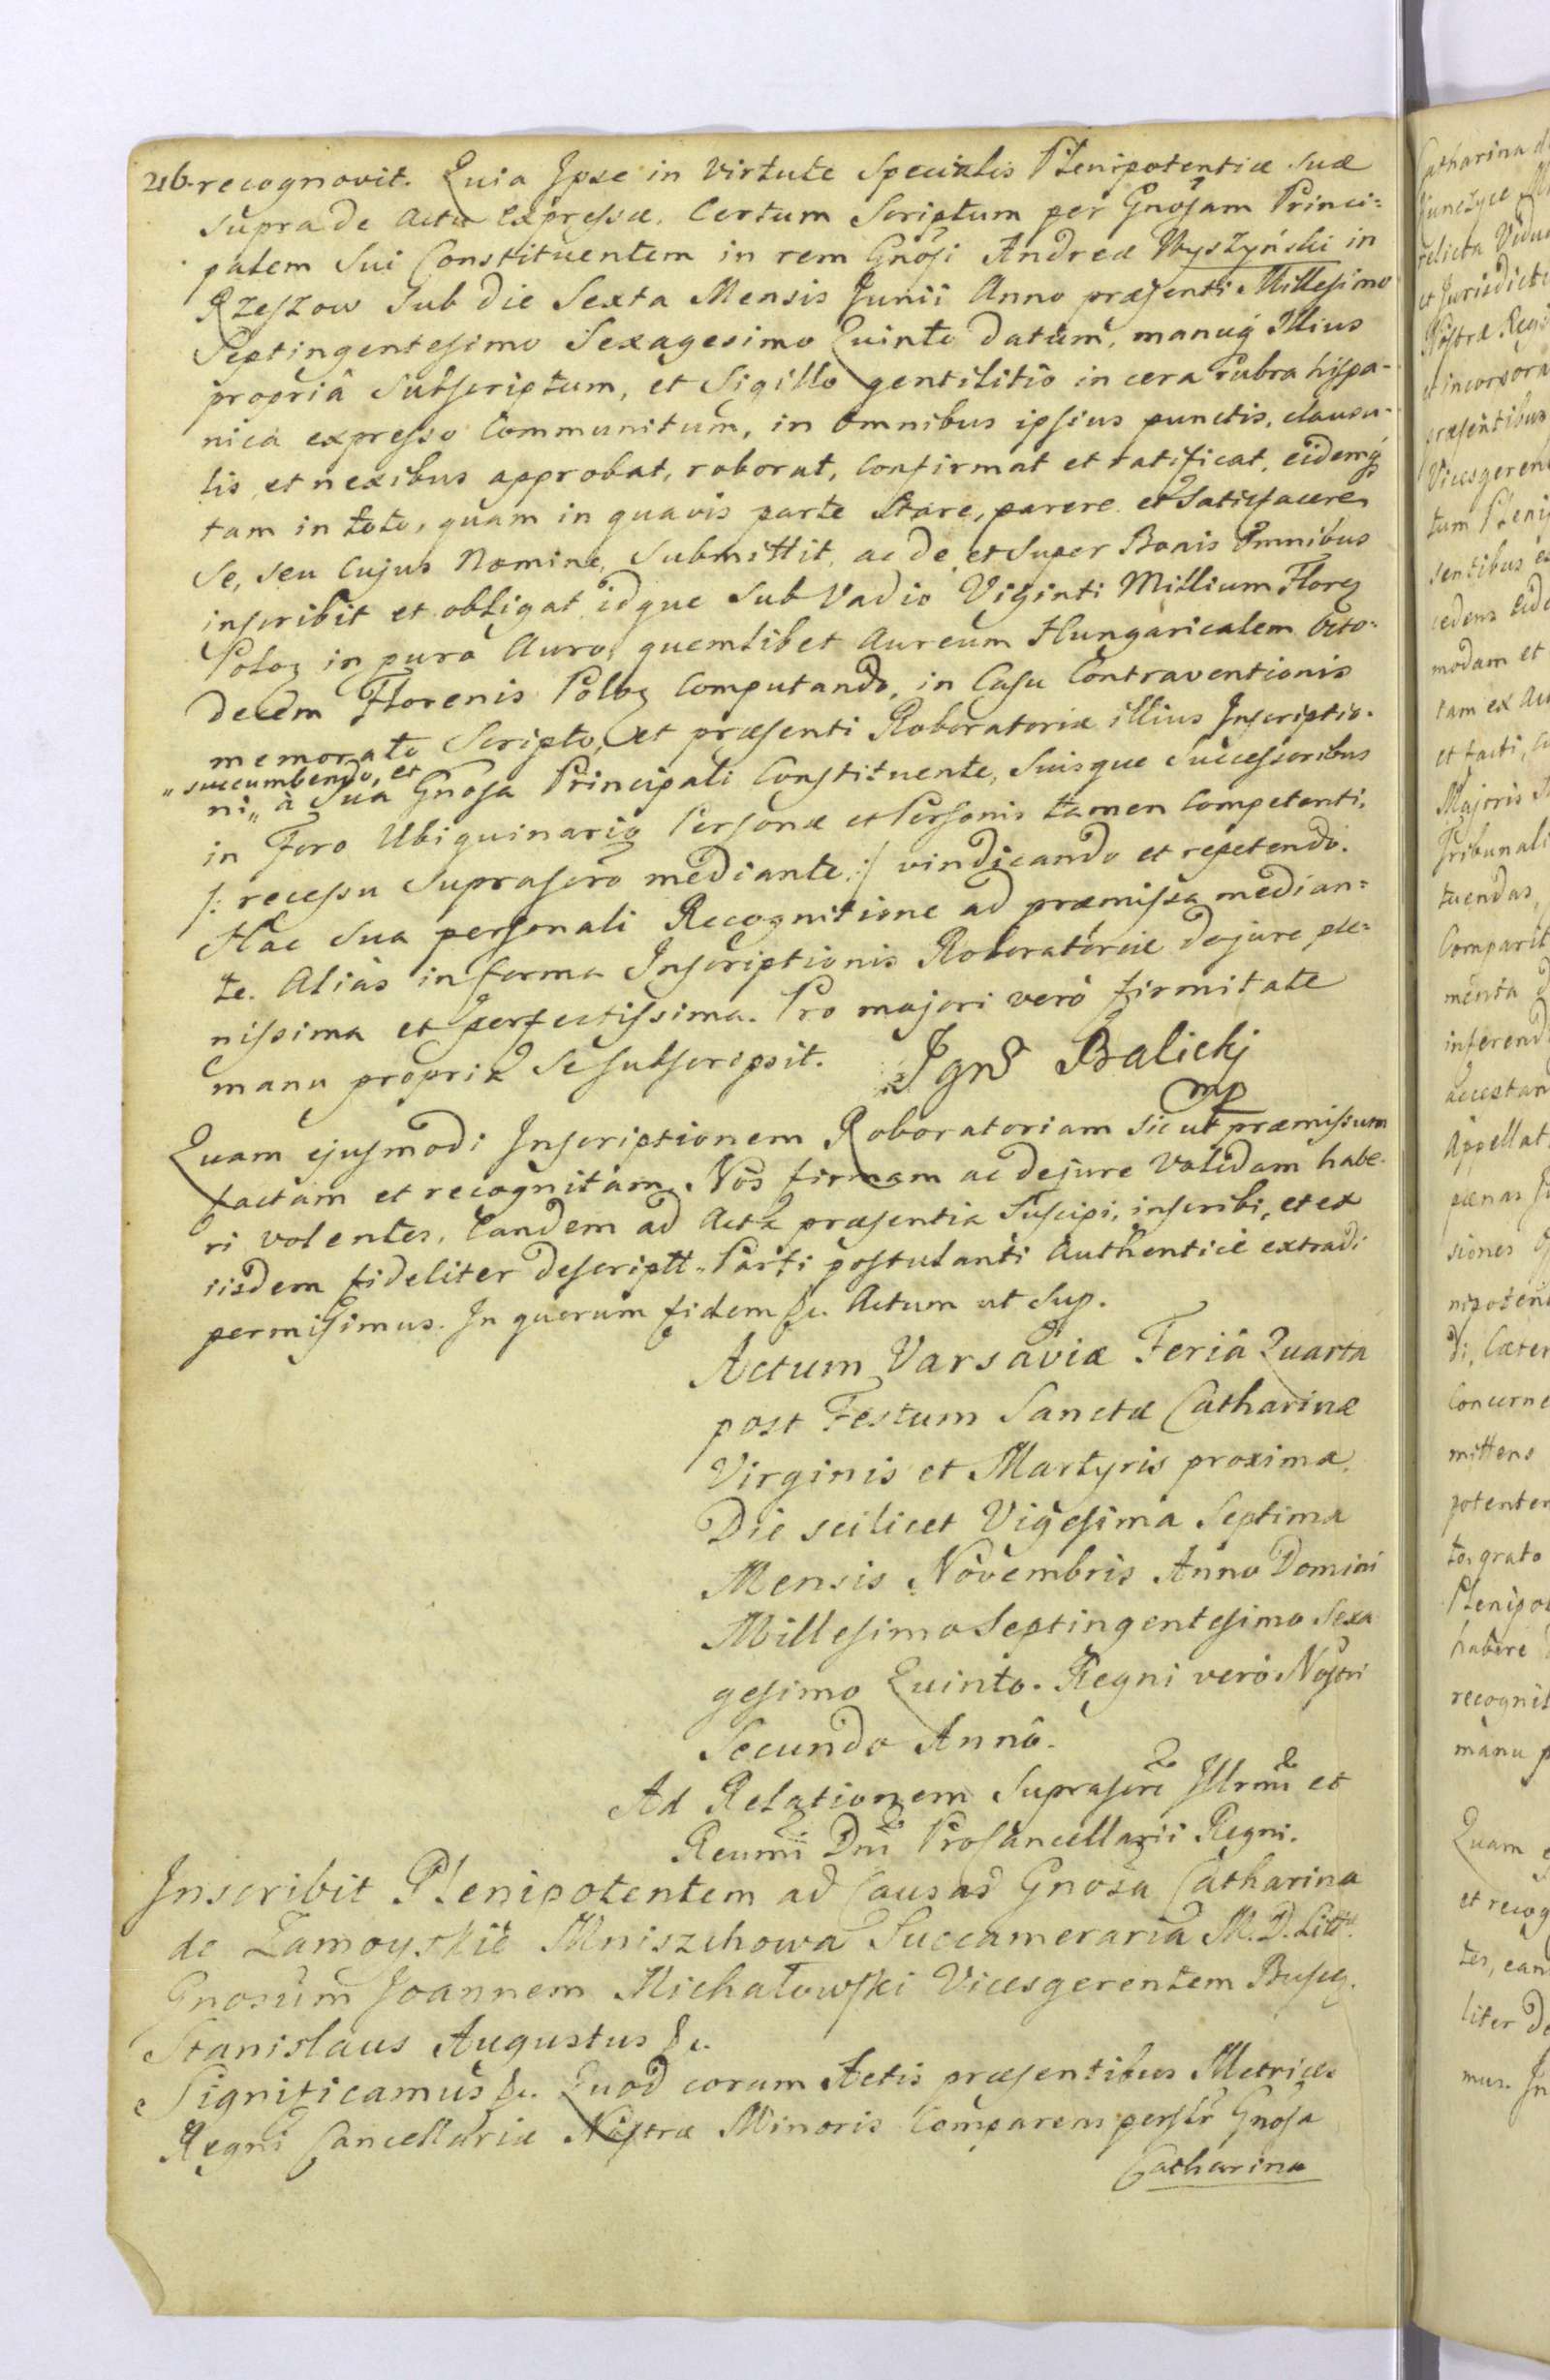 216. recognovit. Quia Ipse in virtute Specialis Plenipotentiæ suæ
supra de actu expressæ. Certum Scriptum per Gnosam Princi=
palem Sui Constituentem in rem Gnosi Andreæ Wyszyński in
Rzeszow Sub die Sexta Mensis Junii Anno præsenti Millesimo
Septingentesimo Sexagesimo Quinto datum, manuq Illius
propriâ Subscriptum, et Sigillo gentilitio in cera rubra hispa-
nica expresso Communitum, in omnibus ipsius punctis, clausu-
lis et nexibus approbat, roborat, confirmat et ratificat, eidemq
tam in toto, quam in quavis parte Stare, parere et Satisfacere
Se, seu Cujus Nomine, Submittit, ac de et Super Bonis Omnibus
inscribit et obligat idque Sub Vadio Viginti Millium Florz
Poloz in puro Auro, quemlibet Aureum Hungaricalem Octo=
decem Florenis Poloz Computando, in Casu Contraventionis
memorato Scripto, et præsenti Roboratoriæ illius Inscriptio-
„ succumbendo, et
ni „ à Sua Gnosa Principali Constituente, Suisque Successoribus
in Foro Ubiquinario Personæ et Personis tamen Competenti,
/: recessu Suprascro mediante :/ vindicando et repetendo.
Hac Sua personali Recognitione ad præmissa median=
te. Aliàs in forma Inscriptionis Roboratoriæ dejure ple=
nissima et perfectissima. Pro majori verò firmitate
manu propria Se Subscripsit. Igns Balickj
mp
Quam ejusmodi Inscriptionem Roboratoriam sic ut præmissum
factam et recognitam. Nos firmam ac dejure Validam habe-
ri volentes, Eandem ad Acta præsentia Suscipi, inscribi, et ex
iisdem fideliter descriptt. Parti postulanti Authenticè extradi
permisimus. In quorum fidem &c. Actum ut Sup.
Actum Varsaviæ Feriâ Quarta
post Festum Sanctæ Catharinæ
Virginis et Martyris proxima.
Die scilicet Vigesima Septima
Mensis Novembris Anno Domini
Millesimo Septingentesimo Sexa
gesimo Quinto. Regni verò Nostri
Secundo Annô.
Ad Relationem Suprascri Illrmi et
Reumi Dni ProCancellarii Regni.
Inscribit Plenipotentem ad Causas Gnosa Catharina
de Zamoyskie Mniszchowa Succameraria M. D. Litt.
Gnosum Joannem Michałowski Vicesgerentem Buscz.
Stanislaus Augustus &c.
Significamus &c. Quod coram Actis præsentibus Metrices
Regni Cancellariæ Nostræ Minoris Comparens perslr Gnosa
Catharina
Catharina d
relicta Vidu
et Jurisdicti
Nostræ Regi
et incorpora
præsentibus
Vicesgeren
tum Pleni
sentibus
cedens
modam et
tam ex Ac
et facti,
Majoris
Tribunali
tuendas,
Comparit
inferend
Appellat
pænas
siones
nipotent
di, Cæter
Concerne
mittens
potenter
Plenipo
habere
recognit
manu p
Quam
et recog
tes, ean
liter de
mus. In